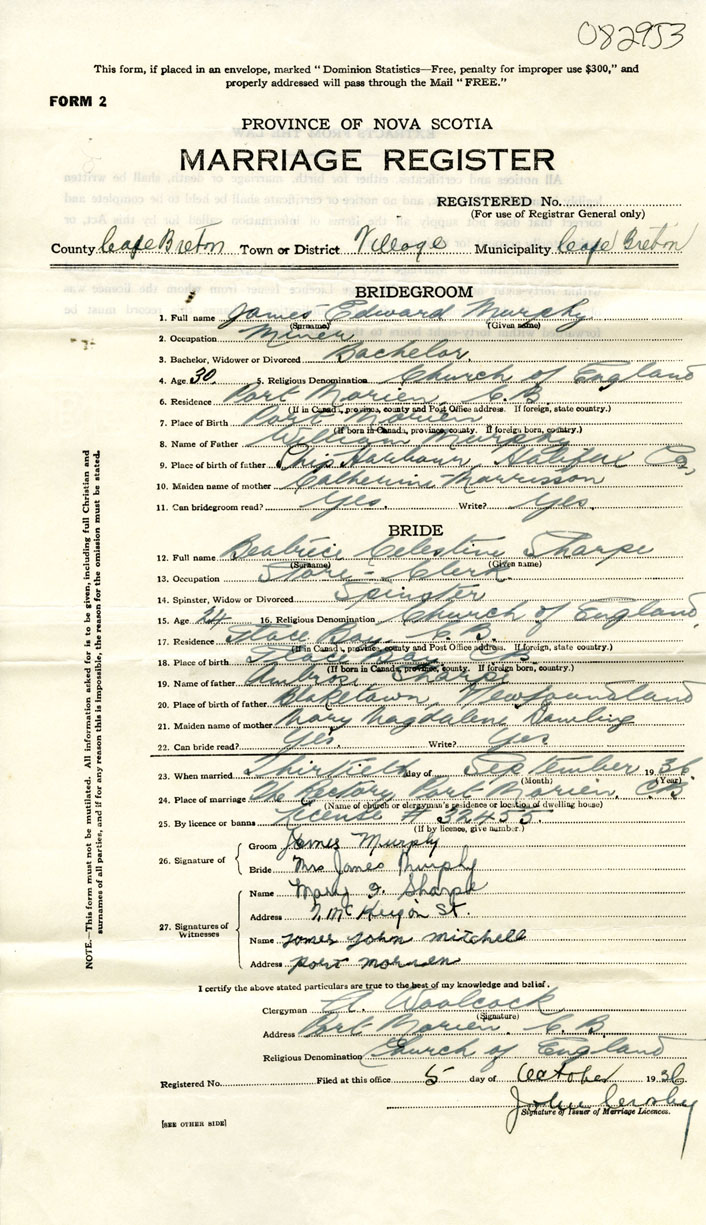 082953
This form, if placed in an envelope, marked "Dominion Statistics—Free, penalty for improper use $300," and
properly addressed will pass through the Mail "FREE."
FORM 2
PROVINCE OF NOVA SCOTIA
MARRIAGE REGISTER
REGISTERED No.
(For use of Registrar General only)
County Cape Breton Town or District Village Municipality Cape Breton
BRIDEGROOM
1. Full name James Edward Murphy
(Surname) (Given name)
2. Occupation Miner
3. Bachelor, Widower or Divorced Bachelor
4. Age 30 5. Religious Denomination Church of England
6. Residence Port Morien, C.B.
(If in Canada, province, county and Post Office address. If foreign, state country.)
7. Place of Birth Port Morien
(If born in Canada, province, county. If foreign born, country.)
8. Name of Father William Murphy
9. Place of birth of father Ship Harbour, Halifax Co,
10. Maiden name of mother Catherine Morrisson
11. Can bridegroom read? Yes. Write? Yes.
BRIDE
12. Full name Beatrice Celestine Sharpe
(Surname) (Given name)
13. Occupation Store-Clerk
14. Spinster, Widow or Divorced Spinster
15. Age 24 16. Religious Denomination Church of England
17. Residence Glace Bay, C.B.
(If in Canada, province, county and Post Office address. If foreign, state country.)
18. Place of birth Glace Bay C.B.
(If born in Canada, province, county. If foreign born, country.)
19. Name of father Ambrose Sharpe
20. Place of birth of father Blaketown, Newfoundland
21. Maiden name of mother Mary Magdalene Dowling
22. Can bride read? Yes. Write? Yes
23. When married Thirtieth day of September 1936
(Month) (Year)
24. Place of marriage The Rectory Port Morien, C.B.
(Name of church or clergyman's residence or location of dwelling house)
25. By licence or banns License # 32455.
(If by licence, give number.)
26. Signature of
Groom James Murphy
Bride Mrs James Murphy
27. Signatures of Witnesses
Name Mary F. Sharpe
Address 7, McKeigon St.
Name James John Mitchell
Address Port Morien
I certify the above stated particulars are true to the best of my knowledge and belief.
Clergyman Woolcock
(Signature)
Address Port Morien, C.B.
Religious Denomination Church of England
Registered No. Filed at this office 5 day of October 1936
Signature of Issuer of Marriage Licences.
[SEE OTHER SIDE]
NOTE.—This form must not be mutilated. All information asked for is to be given, including full Christian and
surnames of all parties, and if for any reason this is impossible, the reason for the omission must be stated.